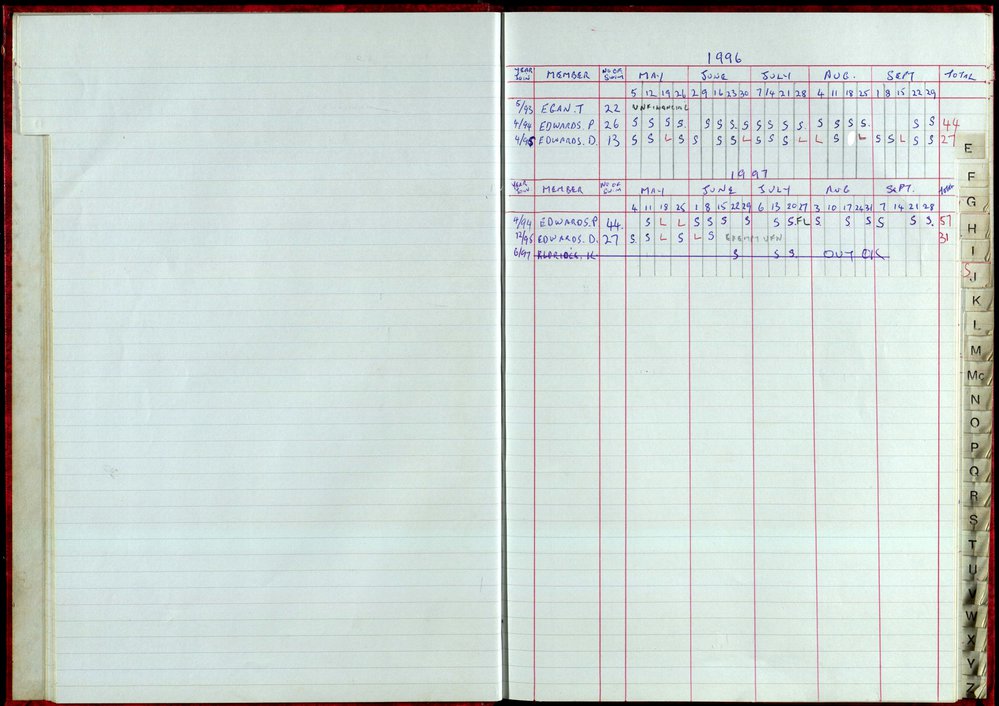 1996
YEAR JOIN MEMBER NO OF SWIM MAY JUNE JULY AUG. SEPT TOTAL
5 12 19 26 2 9 16 23 30 7 14 21 28 4 11 18 25 1 8 15 22 29
5/93 EGAN. T 22 UNFINANCIAL
4/94 EDWARDS. P. 26 S S S S. S S S. S S S S S. S S S S. S S 44
4/95 EDWARDS. D. 13 S S L S S S S L S S S L L S L S S L S S 27
1997
YEAR JOIN MEMBER NO OF SWIM MAY JUNE JULY AUG SEPT.
4 11 18 25 1 8 15 22 29 6 13 20 27 3 10 17 24 31 7 14 21 28
4/94 EDWARDS. P. 44. S L L S S S S S S. FL S. S S S S S. 57
12/95 EDWARDS. D. 27 S. S L S L S EXEMPT 31
6/97 ELDRIDGE. K. S S S. OUT OK
E
F
G
H
I
S J
K
L
M
Mc
N
O
P
Q
R
S
T
U
V
W
X
Y
Z